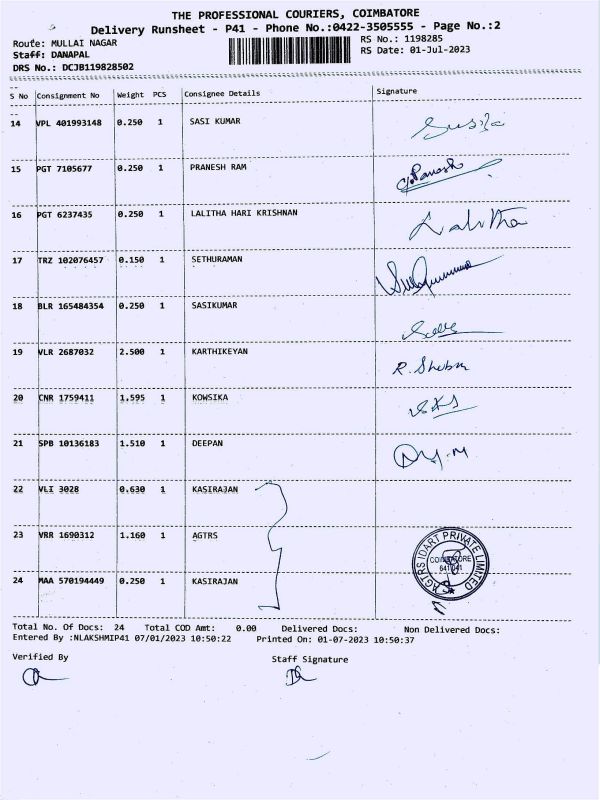 THE PROFESSIONAL COURIERS, COIMBATORE
Delivery Runsheet - P41 - Phone No.:0422-3505555 - Page No.:2
Route: MULLAI NAGAR
RS No.: 1198285
Staff: DANAPAL
RS Date: 01-Jul-2023
DRS No.: DCJB119828502
S No Consignment No Weight PCS Consignee Details Signature
14 VPL 401993148 0.250 1 SASI KUMAR
15 PGT 7105677 0.250 1 PRANESH RAM
16 PGT 6237435 0.250 1 LALITHA HARI KRISHNAN Lalitha
17 TRZ 102076457 0.150 1 SETHURAMAN
18 BLR 165484354 0.250 1 SASIKUMAR
19 VLR 2687032 2.500 1 KARTHIKEYAN R. Shobm
20 CNR 1759411 1.595 1 KOWSIKA
21 SPB 10136183 1.510 1 DEEPAN
22 VLI 3028 0.630 1 KASIRAJAN
23 VRR 1690312 1.160 1 AGTRS
AGTRS IDART PRIVATE LIMITED
COIMBATORE
641 041
24 MAA 570194449 0.250 1 KASIRAJAN
Total No. Of Docs: 24 Total COD Amt: 0.00 Delivered Docs: Non Delivered Docs:
Entered By :NLAKSHMIP41 07/01/2023 10:50:22 Printed On: 01-07-2023 10:50:37
Verified By Staff Signature